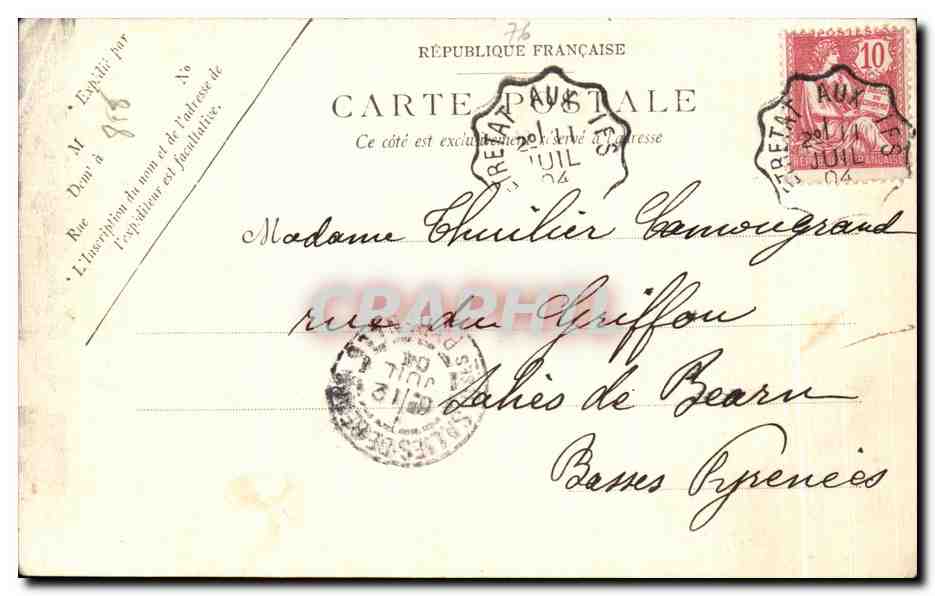 76
RÉPUBLIQUE FRANÇAISE
CARTE POSTALE
Ce côté est exclusivement réservé à l'adresse
Expédié par
M
Dem^t à
Rue
No
L'Inscription du nom et de l'adresse de
l'expéditeur est facultative.
POSTES
10
RÉPUBLIQUE FRANÇAISE
ETRETAT AUX IFS
2º 11
JUIL
04
ETRETAT AUX IFS
2º 11
JUIL
04
Madame Thuilier Camougrand
rue du Griffon
Salies de Bearn
Basses Pyrenées
CRAPHIL
SALIES-DE-BEARN
12
JUIL
04